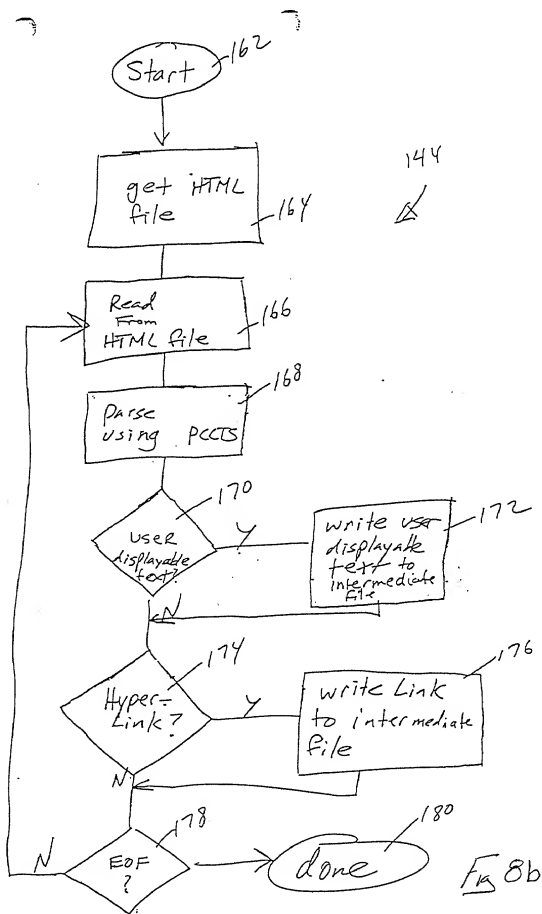 162
Start
144
get HTML
file
164
Read
From
HTML file
166
168
Parse
using PCCTS
170
USER
displayable
text?
Y
write user
displayable
text to
intermediate
file
172
N
174
Hyper-
Link?
Y
176
write Link
to intermediate
file
N
178
EOF
?
N
180
done
Fig 8b